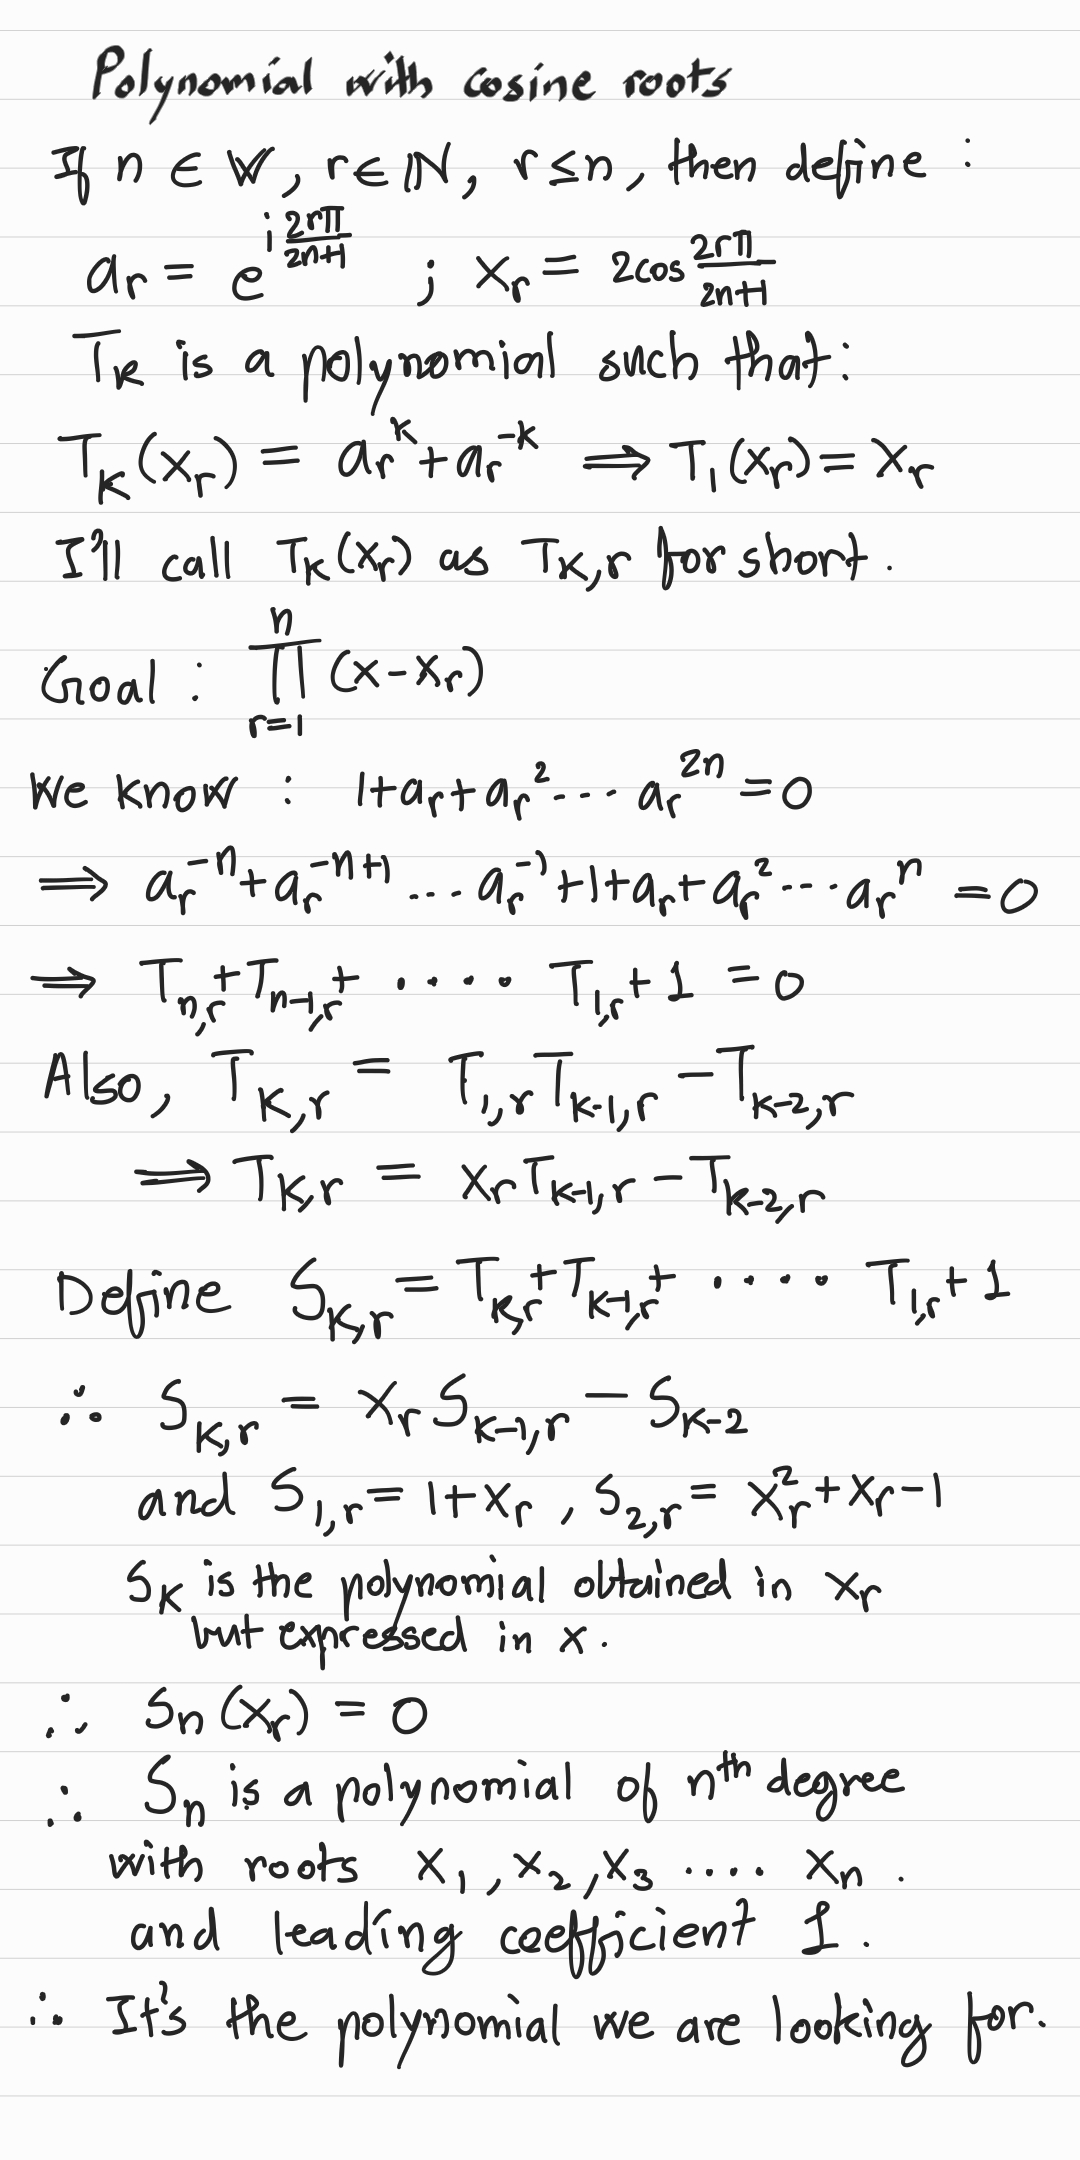 Polynomial with cosine roots
If n ∈ W, r ∈ ℕ, r ≤ n, then define :
a_r = e^{i 2rπ/(2n+1)} ; x_r = 2cos 2rπ/(2n+1)
T_k is a polynomial such that:
T_k(x_r) = a_r^k + a_r^{-k} ⟹ T_1(x_r) = x_r
I'll call T_k(x_r) as T_{k,r} for short.
Goal : ∏_{r=1}^{n} (x - x_r)
We know : 1 + a_r + a_r^2 ... a_r^{2n} = 0
⟹ a_r^{-n} + a_r^{-n+1} ... a_r^{-1} + 1 + a_r + a_r^2 ... a_r^n = 0
⟹ T_{n,r} + T_{n-1,r} + .... T_{1,r} + 1 = 0
Also, T_{k,r} = T_{1,r} T_{k-1,r} - T_{k-2,r}
⟹ T_{k,r} = x_r T_{k-1,r} - T_{k-2,r}
Define S_{k,r} = T_{k,r} + T_{k-1,r} + .... T_{1,r} + 1
∴ S_{k,r} = x_r S_{k-1,r} - S_{k-2}
and S_{1,r} = 1 + x_r , S_{2,r} = x_r^2 + x_r - 1
S_k is the polynomial obtained in x_r
but expressed in x.
∴ S_n(x_r) = 0
∴ S_n is a polynomial of n^{th} degree
with roots x_1, x_2, x_3 .... x_n .
and leading coefficient 1.
∴ It's the polynomial we are looking for.